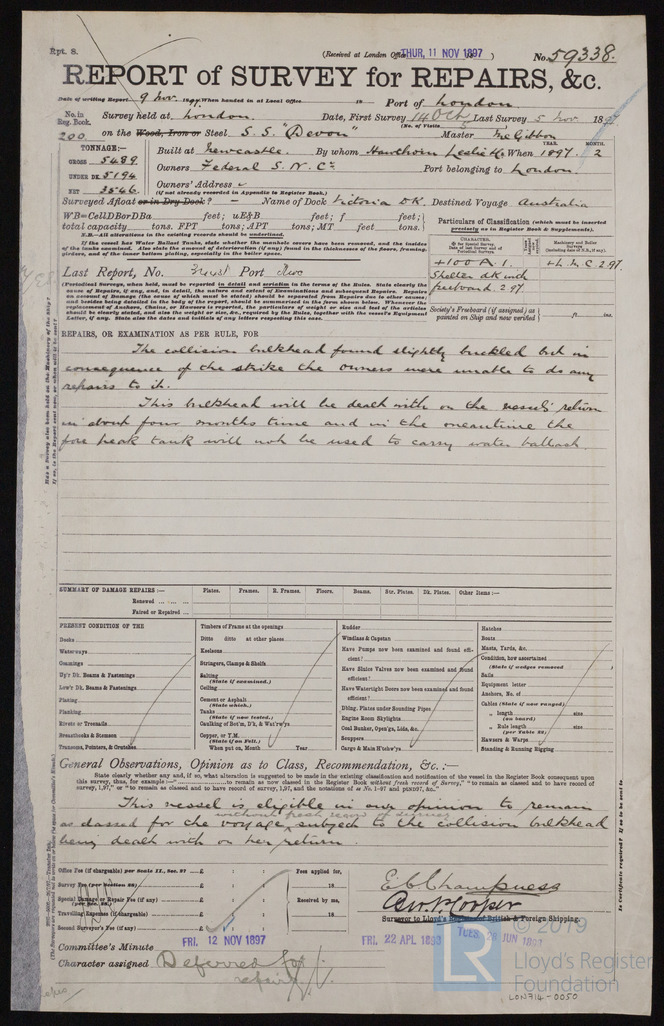 Rpt. 8.
(Received at London Office THUR, 11 NOV 1897 )
No. 59338.
REPORT of SURVEY for REPAIRS, &c.
Date of writing Report 9 Nov. 1897. When handed in at Local Office 18 Port of London
No. in Reg. Book. Survey held at London. Date, First Survey 14 Oct Last Survey 5 Nov 1897
(No. of Visits
200 on the Wood, Iron or Steel S. S. "Devon" Master McGibbon
TONNAGE:—
GROSS 5489
UNDER DK 5194
NET 3546
Built at Newcastle. By whom Hawthorn Leslie & Co When 1897. 2
YEAR. MONTH.
Owners Federal S. N. Co Port belonging to London.
Owners' Address
(if not already recorded in Appendix to Register Book.)
Surveyed Afloat or in Dry Dock? Name of Dock Victoria DK. Destined Voyage Australia
WB=CellDBorDBa feet; uE&B feet; f feet;
total capacity tons. FPT tons; APT tons; MT feet tons.
N.B.—All alterations in the existing records should be underlined.
If the vessel has Water Ballast Tanks, state whether the manhole covers have been removed, and the insides of the tanks examined. Also state the amount of deterioration (if any) found in the thicknesses of the floors, framing, girders, and of the inner bottom plating, especially in the boiler space.
Particulars of Classification (which must be inserted precisely as in Register Book & Supplements).
CHARACTER.
Machinery and Boiler Surveys (including date of N.B., if any).
+100 A.1. +L.M.C. 2.97.
Shelter dk with
freeboard. 2.97
Last Report, No. First Port Nwc
(Periodical Surveys, when held, must be reported in detail and seriatim in the terms of the Rules. State clearly the cause of Repairs, if any, and, in detail, the nature and extent of Examinations and subsequent Repairs. Repairs on account of Damage (the cause of which must be stated) should be separated from Repairs due to other causes; and besides being detailed in the body of the report, should be summarized in the form shown below. Whenever the replacement of Anchors, Chains, or Hawsers is reported, the particulars of weight or size and test of the articles should be clearly stated, and also the weight or size, &c., required by the Rules, together with the vessel's Equipment Letter, if any. State also the dates and initials of any letters respecting this case.
Society's Freeboard (if assigned) as painted on Ship and now verified ft. ins.
REPAIRS, OR EXAMINATION AS PER RULE, FOR
The collision bulkhead found slightly buckled but in
consequence of the strike the owners were unable to do any
repairs to it.
This bulkhead will be dealt with on the vessel's return
in about four months time and in the meantime the
fore peak tank will not be used to carry water ballast
SUMMARY OF DAMAGE REPAIRS:— Plates. Frames. R. Frames. Floors. Beams. Str. Plates. Dk. Plates. Other Items:—
Renewed
Faired or Repaired
PRESENT CONDITION OF THE
Decks
Waterways
Coamings
Up'r Dk. Beams & Fastenings
Low'r Dk. Beams & Fastenings
Plating
Planking
Rivets or Treenails
Breasthooks & Stemson
Transoms, Pointers, & Crutches
Timbers of Frame at the openings
Ditto ditto at other places
Keelsons
Stringers, Clamps & Shelfs
Salting
(State if examined.)
Ceiling
Cement or Asphalt
(State which.)
Tanks
(State if now tested.)
Caulking of Bot'm, D'k, & Wat'rw'ys
Copper, or Y.M.
(State if on Felt.)
When put on, Month Year
Rudder
Windlass & Capstan
Have Pumps now been examined and found efficient?
Have Sluice Valves now been examined and found efficient?
Have Watertight Doors now been examined and found efficient?
Dblng. Plates under Sounding Pipes
Engine Room Skylights
Coal Bunker, Open'gs, Lids, &c.
Scuppers
Cargo & Main H'tchw'ys
Hatches
Boats
Masts, Yards, &c.
Condition, how ascertained
(State if wedges removed
Sails
Equipment letter
Anchors, No. of
Cables (State if now ranged)
" length size
(on board)
" Rule length size
(per Table 22)
Hawsers & Warps
Standing & Running Rigging
General Observations, Opinion as to Class, Recommendation, &c.:—
State clearly whether any and, if so, what alteration is suggested to be made in the existing classification and notification of the vessel in the Register Book consequent upon this survey, thus, for example:— "to remain as now classed in the Register Book without fresh record of Survey," "to remain as classed and to have record of survey, 1,97," or "to remain as classed and to have record of survey, 1,97, and the notations of ss No. 1-97 and ptND97, &c."
This vessel is eligible in our opinion to remain
without fresh record of survey
as classed for the voyage, subject to the collision bulkhead
being dealt with on her return
Office Fee (if chargeable) per Scale II., Sec. 27 £ : : Fees applied for,
Survey Fee (per Section 28) £ : : 18
Special Damage or Repair Fee (if any) (per Sec. 28.) £ : : Received by me,
Travelling Expenses (if chargeable) £ : : 18
Second Surveyor's Fee (if any) £ : :
E C Champness
Surveyor to Lloyd's Register of British & Foreign Shipping.
Committee's Minute FRI. 12 NOV 1897 FRI. 22 APL 1898 TUES. 28 JUN 1898
Character assigned Deferred for
repairs
© 2019
LR
Lloyd's Register
Foundation
LON714-0050